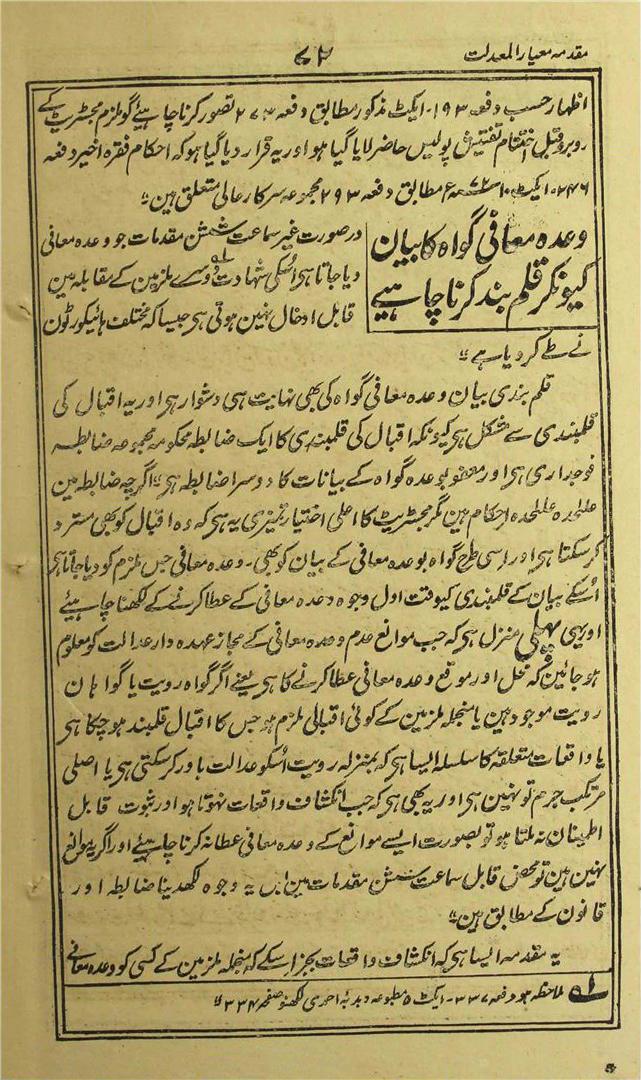 مقدمہ معیار المعدلت
۷۲
اظہار حسب دفعہ ۱۹۳-ایکٹ مذکور مطابق دفعہ ۲۷۳ تصور کرنا چاہیئے گو ملزم مجسٹریٹ کے
روبرو قبل اختتام تفتیش پولیس حاضر لایا گیا ہو اور یہ قرار دیا گیا ہو کہ احکام فقرہ اخیر دفعہ
۲۴۶-ایکٹ ۱۰ ۷۲ء مطابق دفعہ ۲۹۳ مجموعہ سرکار عالی متعلق ہین
وعدہ معافی گواہ کا بیان
کیونکر قلم بند کرنا چاہیے
درصورت غیر سماعت شمشن مقدمات جو وعدہ معافی
دیا جاتا ہی اُسکی شہادت دوسرے ملزمین کے مقابلہ مین
قابل ادخال نہین ہوتی ہی جیسا کہ مختلف ہائیکورٹون
نے طے کر دیا ہے
قلم بندی بیان وعدہ معافی گواہ کی بھی نہایت ہی دشوار ہی اور یہ اقبال کی
قلمبندی سے مشکل ہی کیونکہ اقبال کی قلمبندی کا ایک ضابطہ محکومہ مجموعہ ضابطہ
فوجداری ہی اور معفو بوعدہ گواہ کے بیانات کا دوسرا ضابطہ ہی اگرچہ ضابطہ مین
علٰحدہ علٰحدہ احکام ہین مگر مجسٹریٹ کا اعلی اختیار تمیزی یہ ہی کہ وہ اقبال کو بھی مسترد
کر سکتا ہی اور اسی طرح گواہ بوعدہ معافی کے بیان کو بھی۔ وعدہ معافی جس ملزم کو دیا جاتا ہی
اُسکے بیان کے قلمبندی کیوقت اول وجوہ وعدہ معافی کے عطا کرنے کے لکھنا چاہیئے
اور یہی پہلی منزل ہی کہ جب موانع عدم وعدہ معافی کے مجاز عہدہ دار عدالت کو معلوم
ہو جائین کہ محل اور موقع وعدہ معافی عطا کرنے کا ہی یعنے اگر گواہ رویت یا گواہان
رویت موجود ہین یا منجملہ ملزمین کے کوئی اقبالی ملزم ہو جس کا اقبال قلمبند ہو چکا ہی
یا واقعات متعلقہ کا سلسلہ ایسا ہی کہ بمنزلہ رویت اُسکو عدالت باور کر سکتی ہی یا اصلی
مرتکب جرم تو نہین ہی اور یہ بھی ہی کہ جب انکشاف واقعات نہوتا ہو اور ثبوت قابل
اطینان نہ ملتا ہو تو بصورت ایسے موانع کے وعدہ معافی عطا نہ کرنا چاہیئے اور اگر یہ موانع
نہین ہین تو محض قابل سماعت سشن مقدمات مین یہ وجوہ لکھدینا ضابطہ اور
قانون کے مطابق ہین
یہ مقدمہ ایسا ہی کہ انکشاف واقعات بجز اسکے کہ منجملہ ملزمین کے کسی کو وعدہ معافی
ملاحظہ ہو دفعہ ۳۳۷-ایکٹ ۵ مطبوعہ دبدبۂ احمدی لکھنؤ صفحہ ۲۳۴